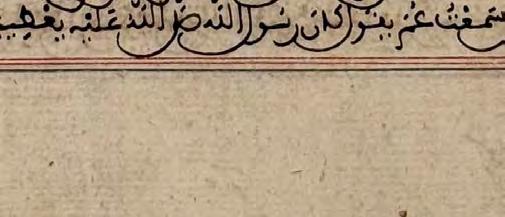 سمعت عمر يقول كان رسول الله صلى الله عليه يعطينى